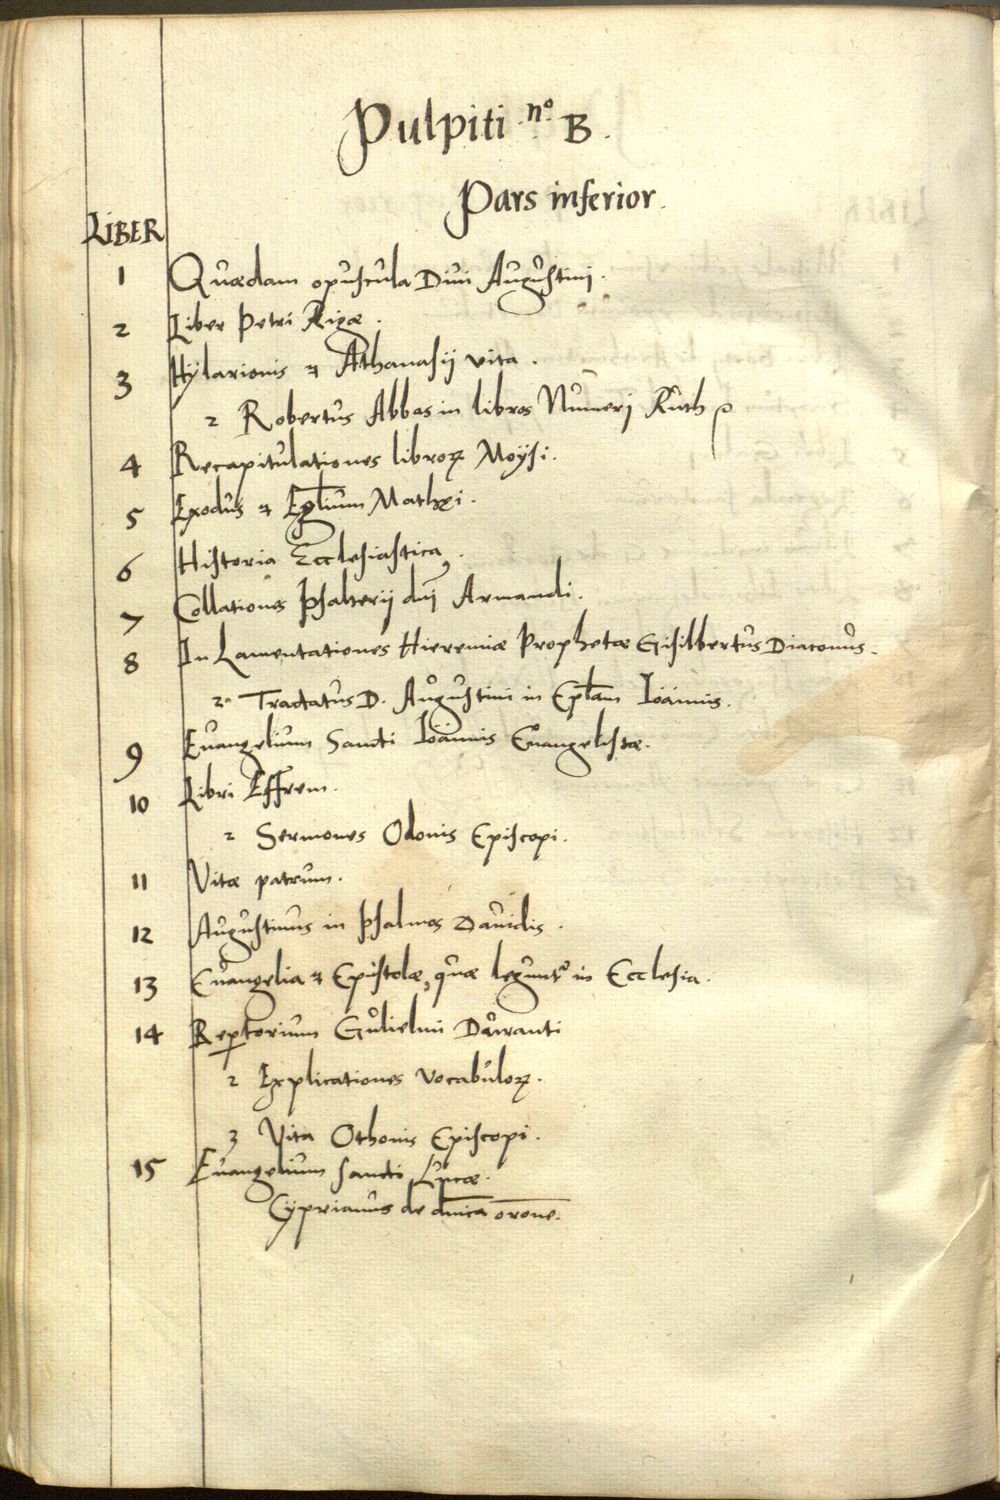 Pulpiti nº. B.
Pars inferior.
LIBER
1 Quædam opuscula Diui Augustini.
2 Liber Petri Rigæ.
3 Hylarionis ⁊ Athanasij vita.
2 Robertus Abbas in libros Numerj Ruth
4 Recapitulationes libroꝝ Moÿsi.
5 Exodus ⁊ Eg̅lium Mathęi.
6 Historia Ecclesiastica.
7 Collationes Psalterij dn̅j Armandi.
8 In Lamentationes Hieremiæ Prophetæ Gisilbertus Diaconus.
2º Tractatus D. Augustini in Ep̅lam Ioannis.
9 Euangelium Sancti Ioannis Euangelistæ.
10 Libri Effrem.
2 Sermones Odonis Episcopi.
11 Vitæ patrum.
12 Augustinus in Psalmos Dauidis.
13 Euangelia ⁊ Epistolæ, quæ legunt᷑ in Ecclesia.
14 Reꝑtorium Gulielmi Durranti
2 Explicationes vocabuloꝝ.
3 Vita Othonis Episcopi.
15 Euangelium sancti Lucæ.
Cyprianus de dn̅ica oro̅ne.